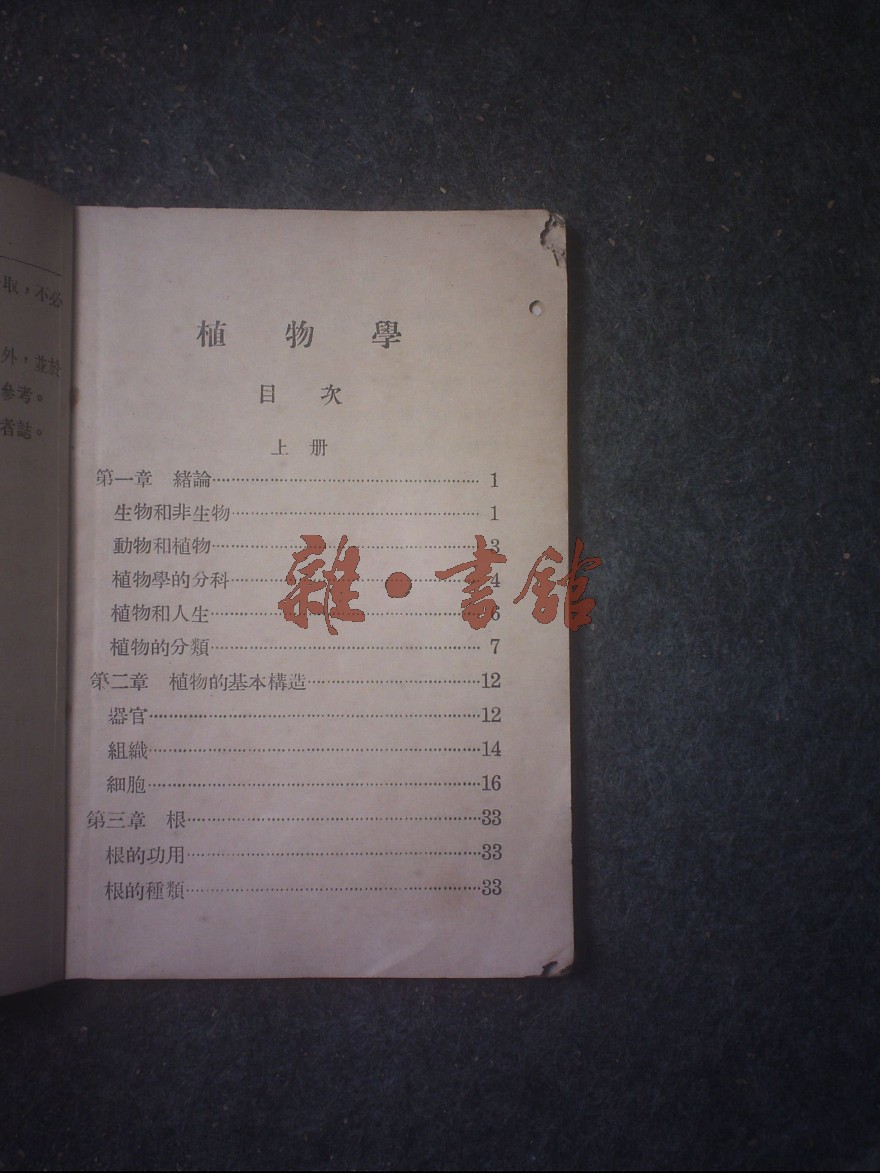 取，不必
外，並於
參考。
者誌。
植物學
目次
上册
第一章　緒論 1
生物和非生物 1
動物和植物 3
植物學的分科 4
植物和人生 6
植物的分類 7
第二章　植物的基本構造 12
器官 12
組織 14
細胞 16
第三章　根 33
根的功用 33
根的種類 33
雜·書館